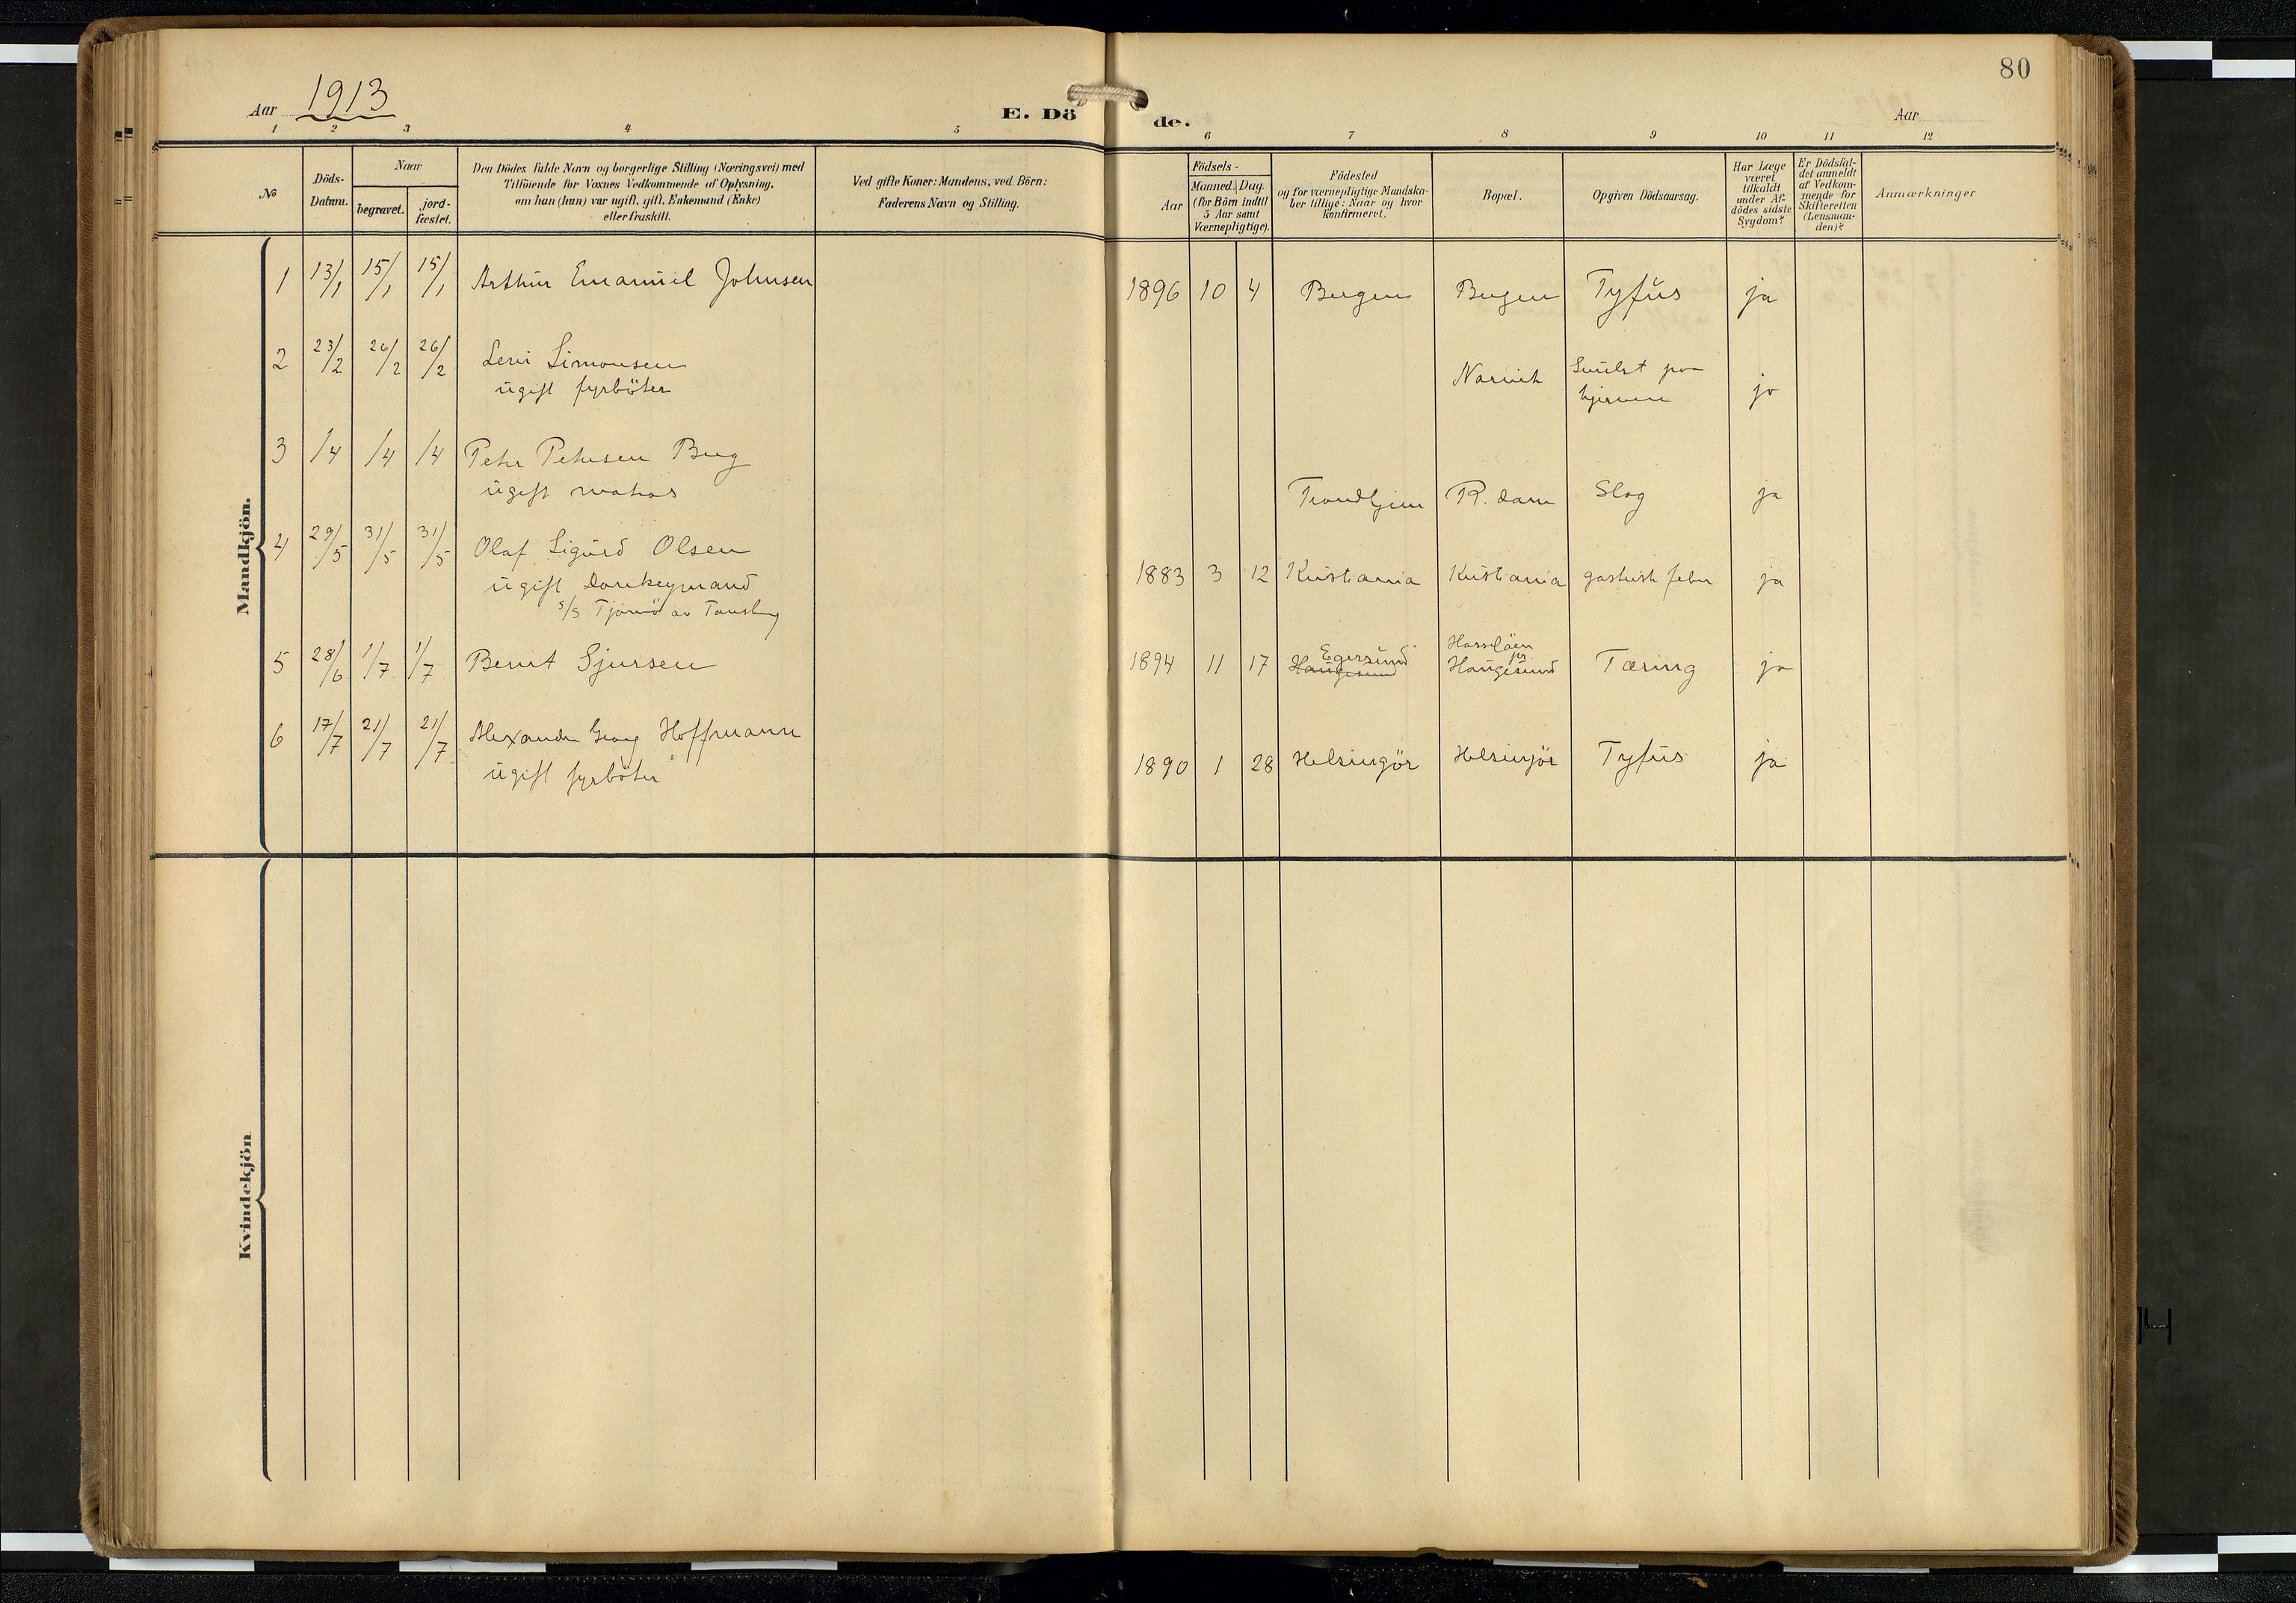 80
Aar 1913
E. Dö de.
Aar
1 2 3 4 5 6 7 8 9 10 11 12
No
Döds-
Datum.
Naar
begravet.
jord-
fæstet.
Den Dödes fulde Navn og borgerlige Stilling (Næringsvei) med
Tilföiende for Voxnes Vedkommende af Oplysning,
om han (hun) var ugift, gift, Enkemand (Enke)
eller fraskilt.
Ved gifte Koner: Mandens, ved Börn:
Faderens Navn og Stilling.
Födsels-
Aar
Maaned. Dag.
(for Börn indtil
5 Aar samt
Værnepligtige).
Födested
og for værnepligtige Mandska-
ber tillige: Naar og hvor
konfirmeret.
Bopæl.
Opgiven Dödsaarsag.
Har Læge
været
tilkaldt
under Af-
dödes sidste
Sygdom?
Er Dödsfal-
det anmeldt
af Vedkom-
mende for
Skifteretten
(Lensman-
den)?
Anmærkninger
Mandkjön.
1 13/1 15/1 15/1 Arthur Emanuel Johnsen 1896 10 4 Bergen Bergen Tyfus ja
2 23/2 26/2 26/2 Levi Simonsen
ugift fyrböter Narvik paa
hjernen ja
3 /4 /4 /4 Peter Petersen Berg
ugift matros Trondhjem R.dam Slag ja
4 29/5 31/5 31/5 Olaf Sigurd Olsen
ugift Donkeymand 1883 3 12 Kristiania Kristiania gastrisk feber ja
s/s Tjömö av Tönsberg
5 28/6 1/7 1/7 Bernt Sjursen 1894 11 17 Egersund
Haugesund
pr
Haugesund Tæring ja
6 17/7 21/7 21/7 Alexander Georg Hoffmann
ugift fyrböter 1890 1 28 Helsingör Helsingör Tyfus ja
Kvindekjön